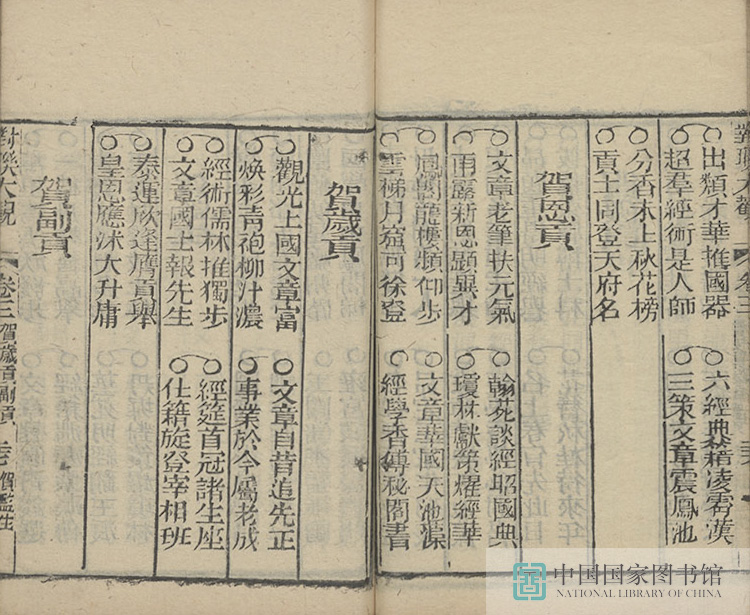 出類才華推國器
超羣經術是人師
六經典籍凌霄漢
三策文章震鳳池
分香未上秋花榜
貢士同登天府名
賀恩貢
文章老筆扶元氣
雨露新恩顯異才
翰苑談經昭國典
瓊林獻策燿經華
鳳閣龍樓頻仰步
雲梯月窟可徐登
文章華國天池源
經學香傳秘閣書
賀歲貢
觀光上國文章富
煥彩青袍柳汁濃
文章自昔追先正
事業於今屬老成
經術儒林推獨步
文章國士報先生
經筵首冠諸生座
仕籍旋登宰相班
泰運欣逢膺貢舉
皇恩應沐大升庸
賀副貢
對聯大觀
卷三
賀歲貢副貢
賀監生
中国国家图书馆
NATIONAL LIBRARY OF CHINA